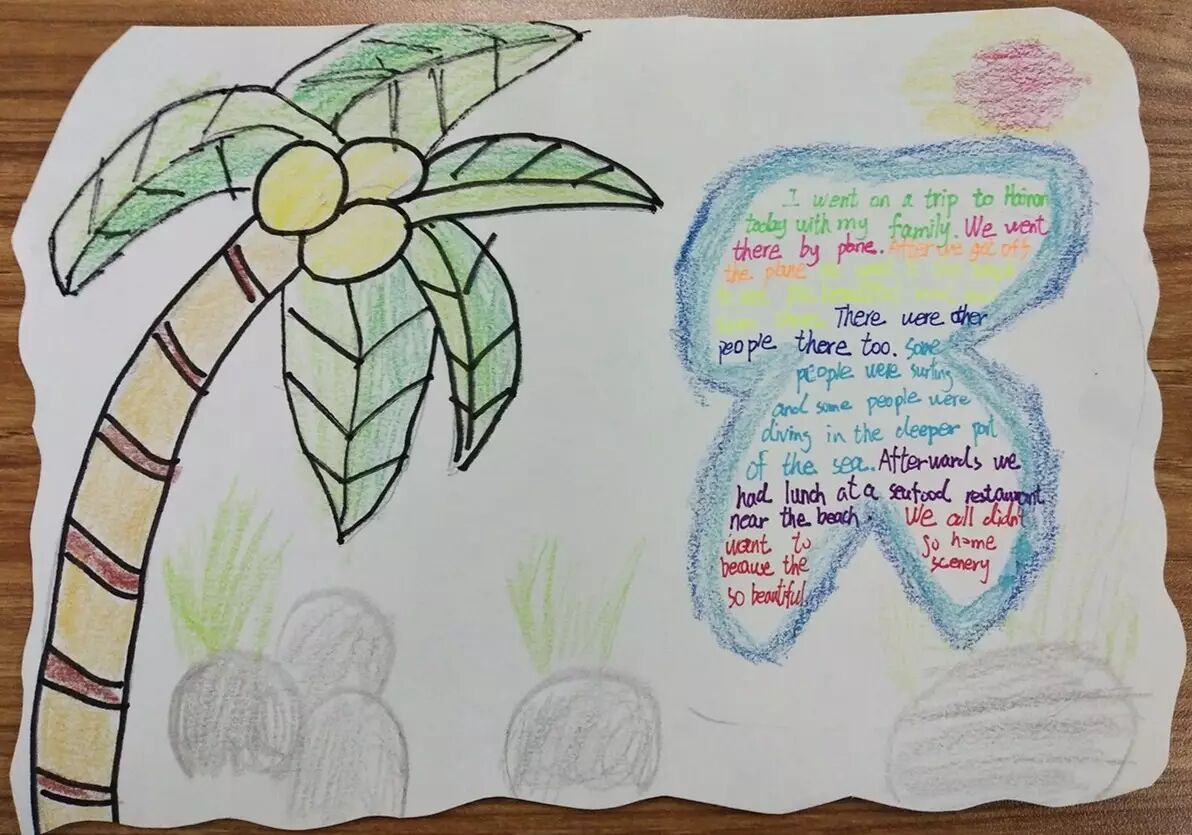 I went on a trip to Hainan
today with my family. We went
there by plane. After we got off
the plane
the beautiful
There were other
people there too. Some
people were surfing
and some people were
diving in the deeper part
of the sea. Afterwards we
had lunch at a seafood restaurant
near the beach. We all didn't
want to go home
because the scenery
so beautiful.